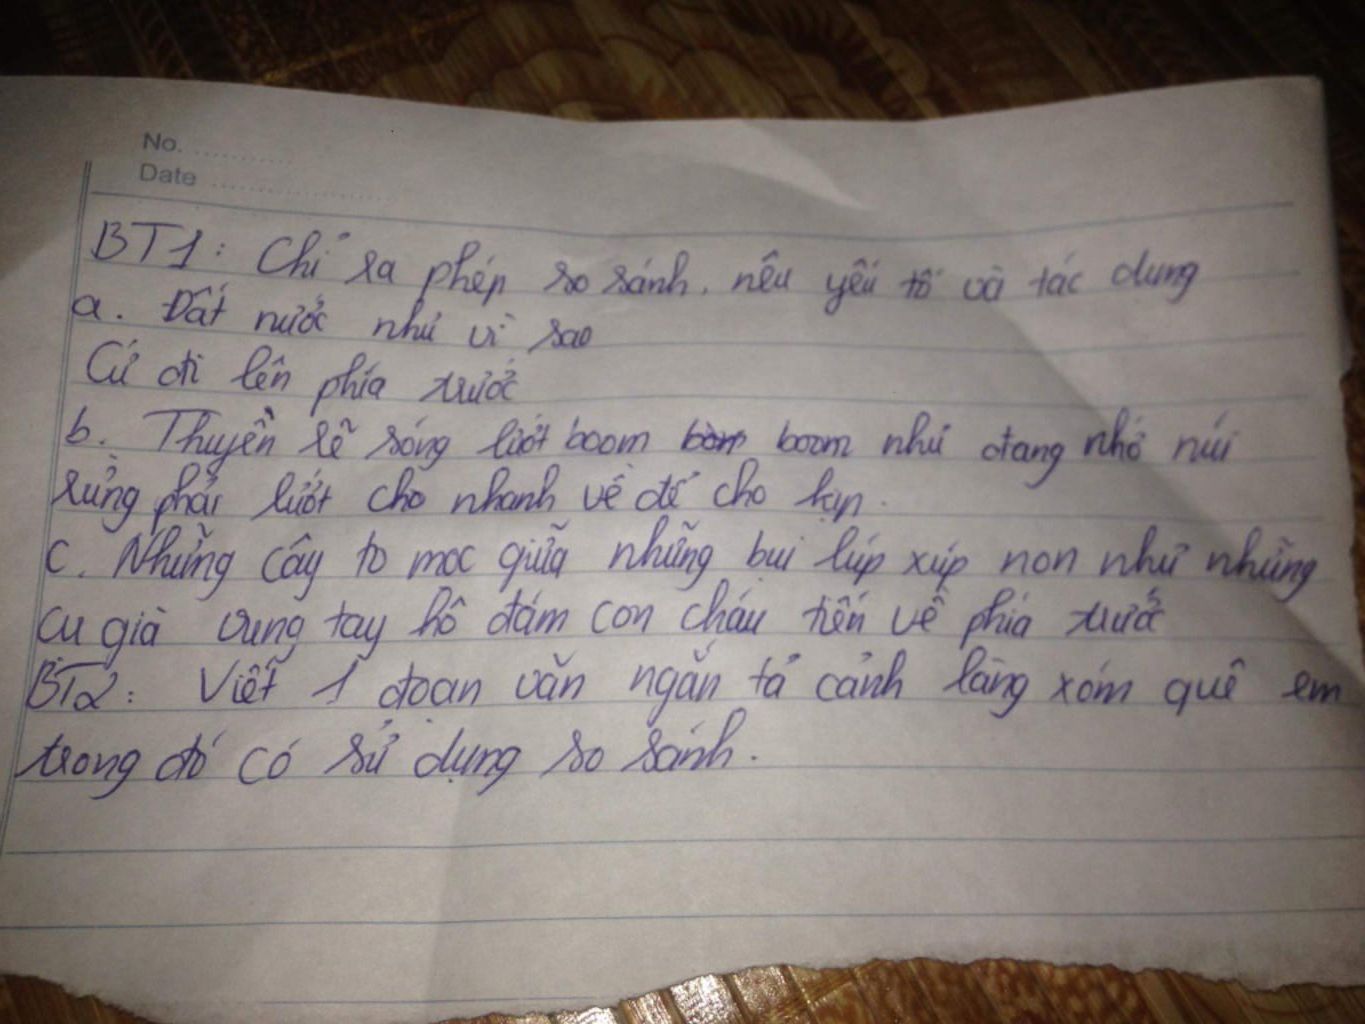 No. ............
Date ....................
BT1: Chỉ ra phép so sánh, nêu yếu tố và tác dụng
a. Đất nước như vì sao
Cứ đi lên phía trước
b. Thuyền rẽ sóng lướt boom boom như đang nhớ núi
rừng phải lướt cho nhanh về để cho kịp.
c. Những cây to mọc giữa những bụi lúp xúp non như những
cụ già vung tay hô đám con cháu tiến về phía trước
BT2: Viết 1 đoạn văn ngắn tả cảnh làng xóm quê em
trong đó có sử dụng so sánh.